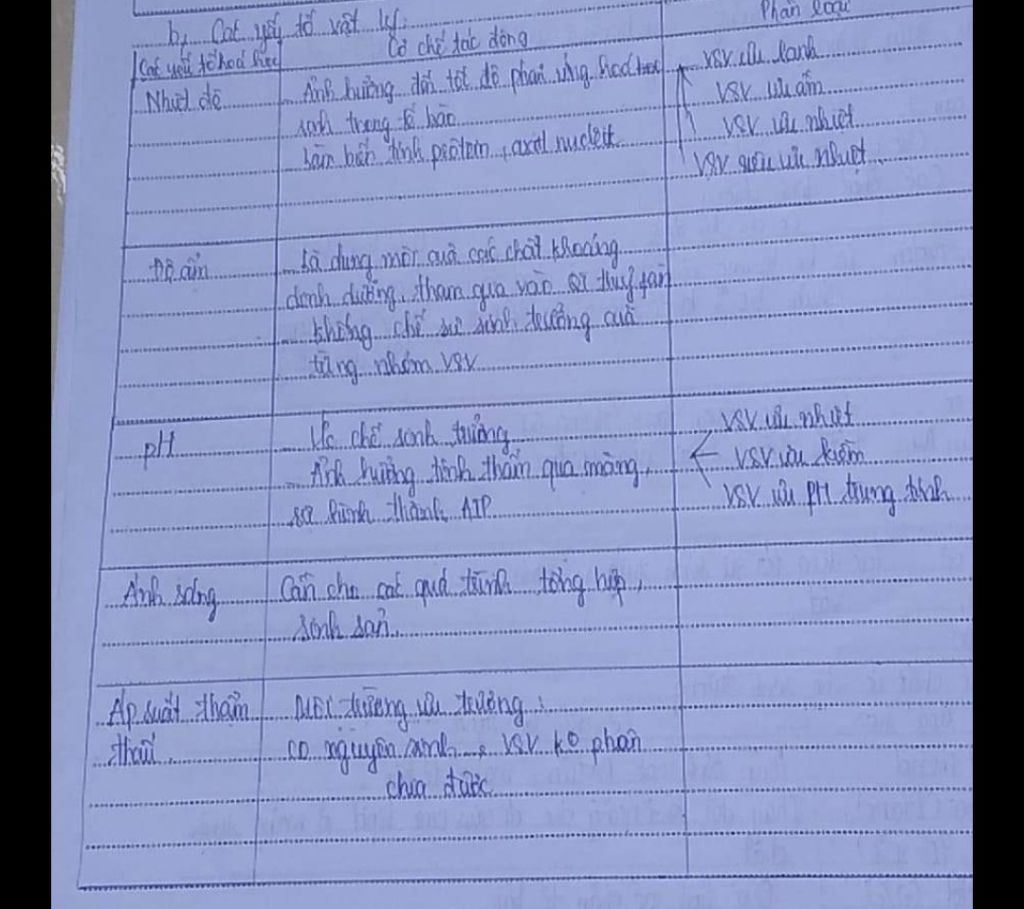 b, Các yếu tố vật lý:
Phân loại
Các yếu tố hoá học
Cơ chế tác động
Nhiệt độ
Ảnh hưởng đến tốc độ phản ứng hoá học
sinh trong tế bào
Làm biến tính protein, axit nucleic
VSV ưa lạnh
VSV ưa ấm
VSV ưa nhiệt
VSV siêu ưa nhiệt
Độ ẩm
Là dung môi của các chất khoáng
dinh dưỡng, tham gia vào QT thuỷ phân
khống chế sự sinh trưởng của
từng nhóm VSV
pH
Ức chế sinh trưởng
Ảnh hưởng tính thấm qua màng,
sự hình thành ATP
VSV ưa nhiệt
VSV ưa kiềm
VSV ưa PH trung tính
Ánh sáng
Cần cho các quá trình tổng hợp,
sinh sản
Áp suất thẩm
thấu
trường ưu trương:
co nguyên sinh VSV ko phân
chia được